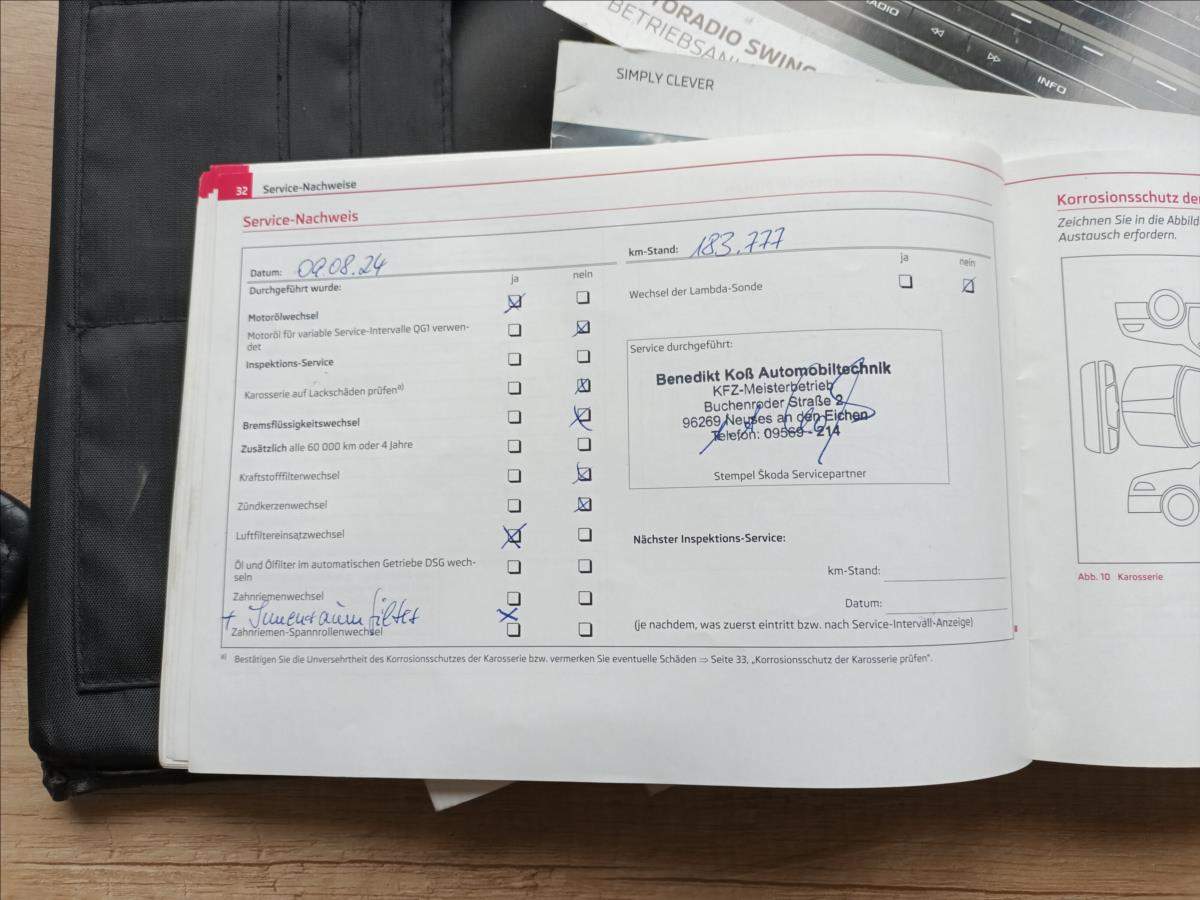 TORADIO SWING
BETRIEBSAN
RADIO
INFO
SIMPLY CLEVER
32 Service-Nachweise
Service-Nachweis
Datum: 09.08.24
ja nein
Durchgeführt wurde:
Motorölwechsel
Motoröl für variable Service-Intervalle QG1 verwen-
det
Inspektions-Service
Karosserie auf Lackschäden prüfen a)
Bremsflüssigkeitswechsel
Zusätzlich alle 60 000 km oder 4 Jahre
Kraftstofffilterwechsel
Zündkerzenwechsel
Luftfiltereinsatzwechsel
Öl und Ölfilter im automatischen Getriebe DSG wech-
seln
Zahnriemenwechsel
+ Innenraumfilter
Zahnriemen-Spannrollenwechsel
km-Stand: 183.777
ja nein
Wechsel der Lambda-Sonde
Service durchgeführt:
Benedikt Koß Automobiltechnik
KFZ-Meisterbetrieb
Buchenroder Straße 2
96269 Neuses an den Eichen
Telefon: 09569 - 214
Stempel Škoda Servicepartner
Nächster Inspektions-Service:
km-Stand:
Datum:
(je nachdem, was zuerst eintritt bzw. nach Service-Intervall-Anzeige)
a) Bestätigen Sie die Unversehrtheit des Korrosionsschutzes der Karosserie bzw. vermerken Sie eventuelle Schäden ⇒ Seite 33, „Korrosionsschutz der Karosserie prüfen“.
Korrosionsschutz der
Zeichnen Sie in die Abbild
Austausch erfordern.
Abb. 10 Karosserie